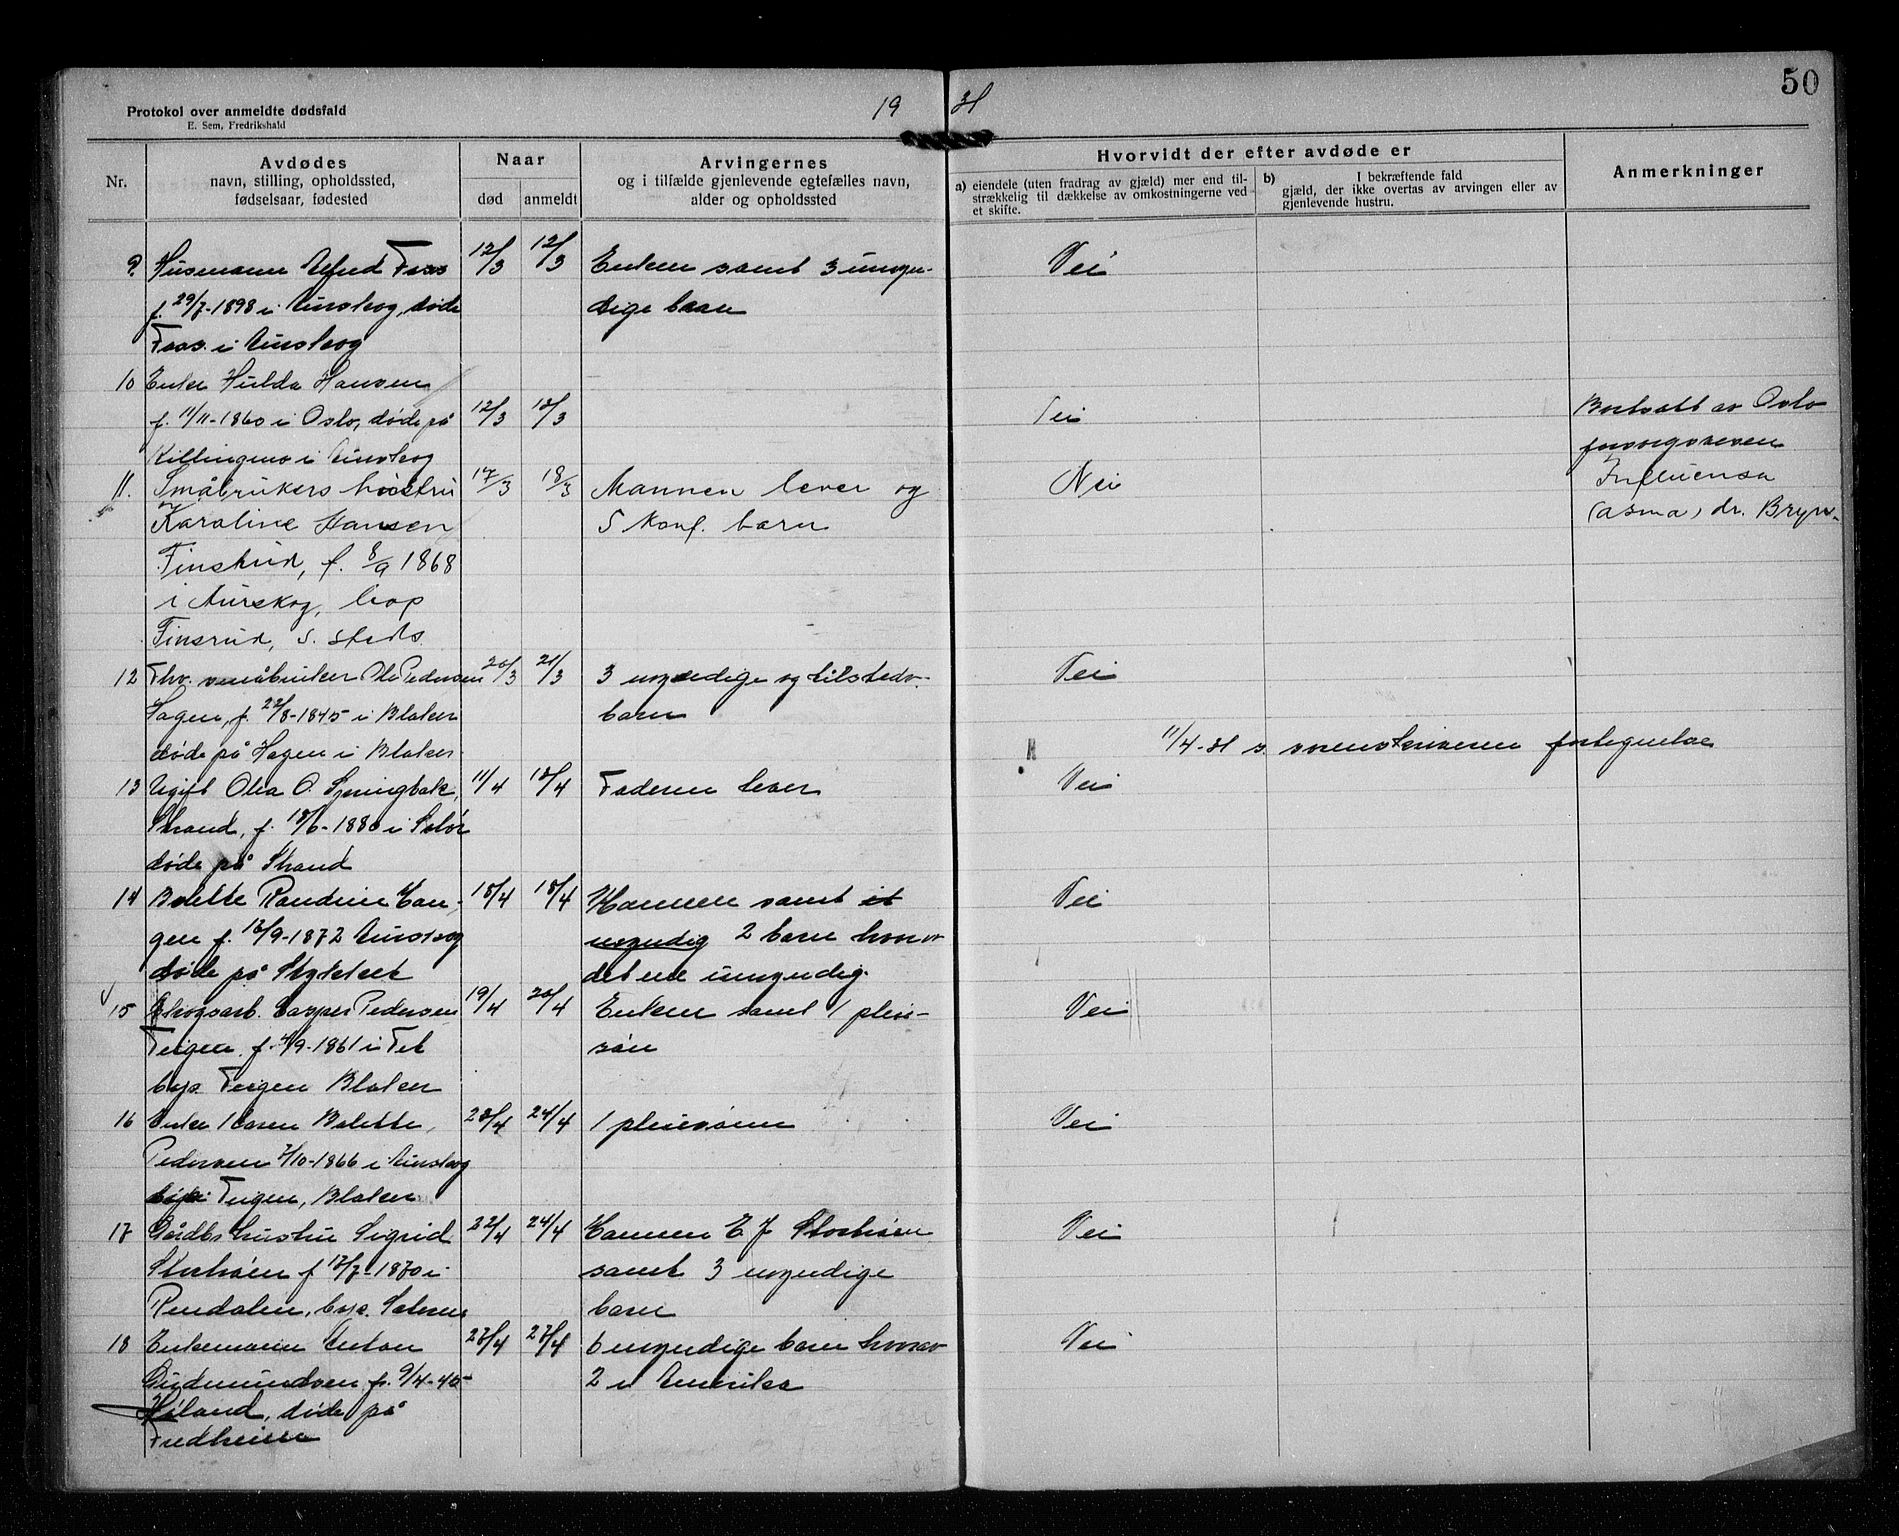 50
Protokol over anmeldte dødsfald
E. Sem, Fredrikshald
19 31
Nr.
Avdødes
navn, stilling, opholdssted,
fødselsaar, fødested
Naar
død
anmeldt
Arvingernes
og i tilfælde gjenlevende egtefælles navn,
alder og opholdssted
Hvorvidt der efter avdøde er
a) eiendele (uten fradrag av gjæld) mer end til-
strækkelig til dækkelse av omkostningerne ved
et skifte.
b) I bekræftende fald
gjæld, der ikke overtas av arvingen eller av
gjenlevende hustru.
Anmerkninger
9. Husmann Alfred Foss 12/3 12/3 Enken samt 3 umyn- Nei
f. 29/7-1898 i Aurskog, døde dige barn
Foss i Aurskog
10 Enke Hulda Hansen
f. 11/11-1860 i Oslo, døde på 12/3 13/3 Nei Bortsatt av Oslo
Killingmo i Aurskog forsorgsvesen
11. Småbrukers hustru 17/3 18/3 Mannen lever og Nei Influensa
Karoline Hansen 5 konf. barn (asma) dr. Bryn.
Finsrud, f. 8/9 1868
i Aurskog, bop
Finsrud, s. steds.
12 Fhv. småbruker Ole Pedersen 20/3 21/3 3 myndige og tilsteds. Nei
Hagen, f. 22/8-1845 i Blaker barn
døde på Hagen i Blaker 11/4-31 s. sorenskriveren fortegnelse
13 Ugift Olea O. 11/4 13/4 Faderen lever Nei
Strand, f. 18/6-1880 i Solør
døde på Strand
14 Bolette Randine Han- 18/4 18/4 Mannen samt et Nei
gen f. 13/9-1872 Aurskog umyndig 2 barn hvorav
døde på Stykket det ene umyndig.
15 Skogsarb. Casper Pedersen 19/4 20/4 Enken samt 1 pleie- Nei
Teigen f. 4/9-1861 i Fet søn
bops. Teigen Blaker
16 Enke Karen Bolette 23/4 24/4 1 pleiesønn Nei
Pedersen 7/10-1866 i Aurskog
Teigen, Blaker
17 Gårdbr. hustru Sigrid 22/4 24/4 Mannen E J Storhøien Nei
Storhøien f 13/7-1870 i samt 3 myndige
Rendalen, bops. barn
18 Enkemann Anton 27/4 27/4 6 myndige barn hvorav Nei
Gudmundsen f. 9/4-45 2 i Amerika
Høland, døde på
Fredheim